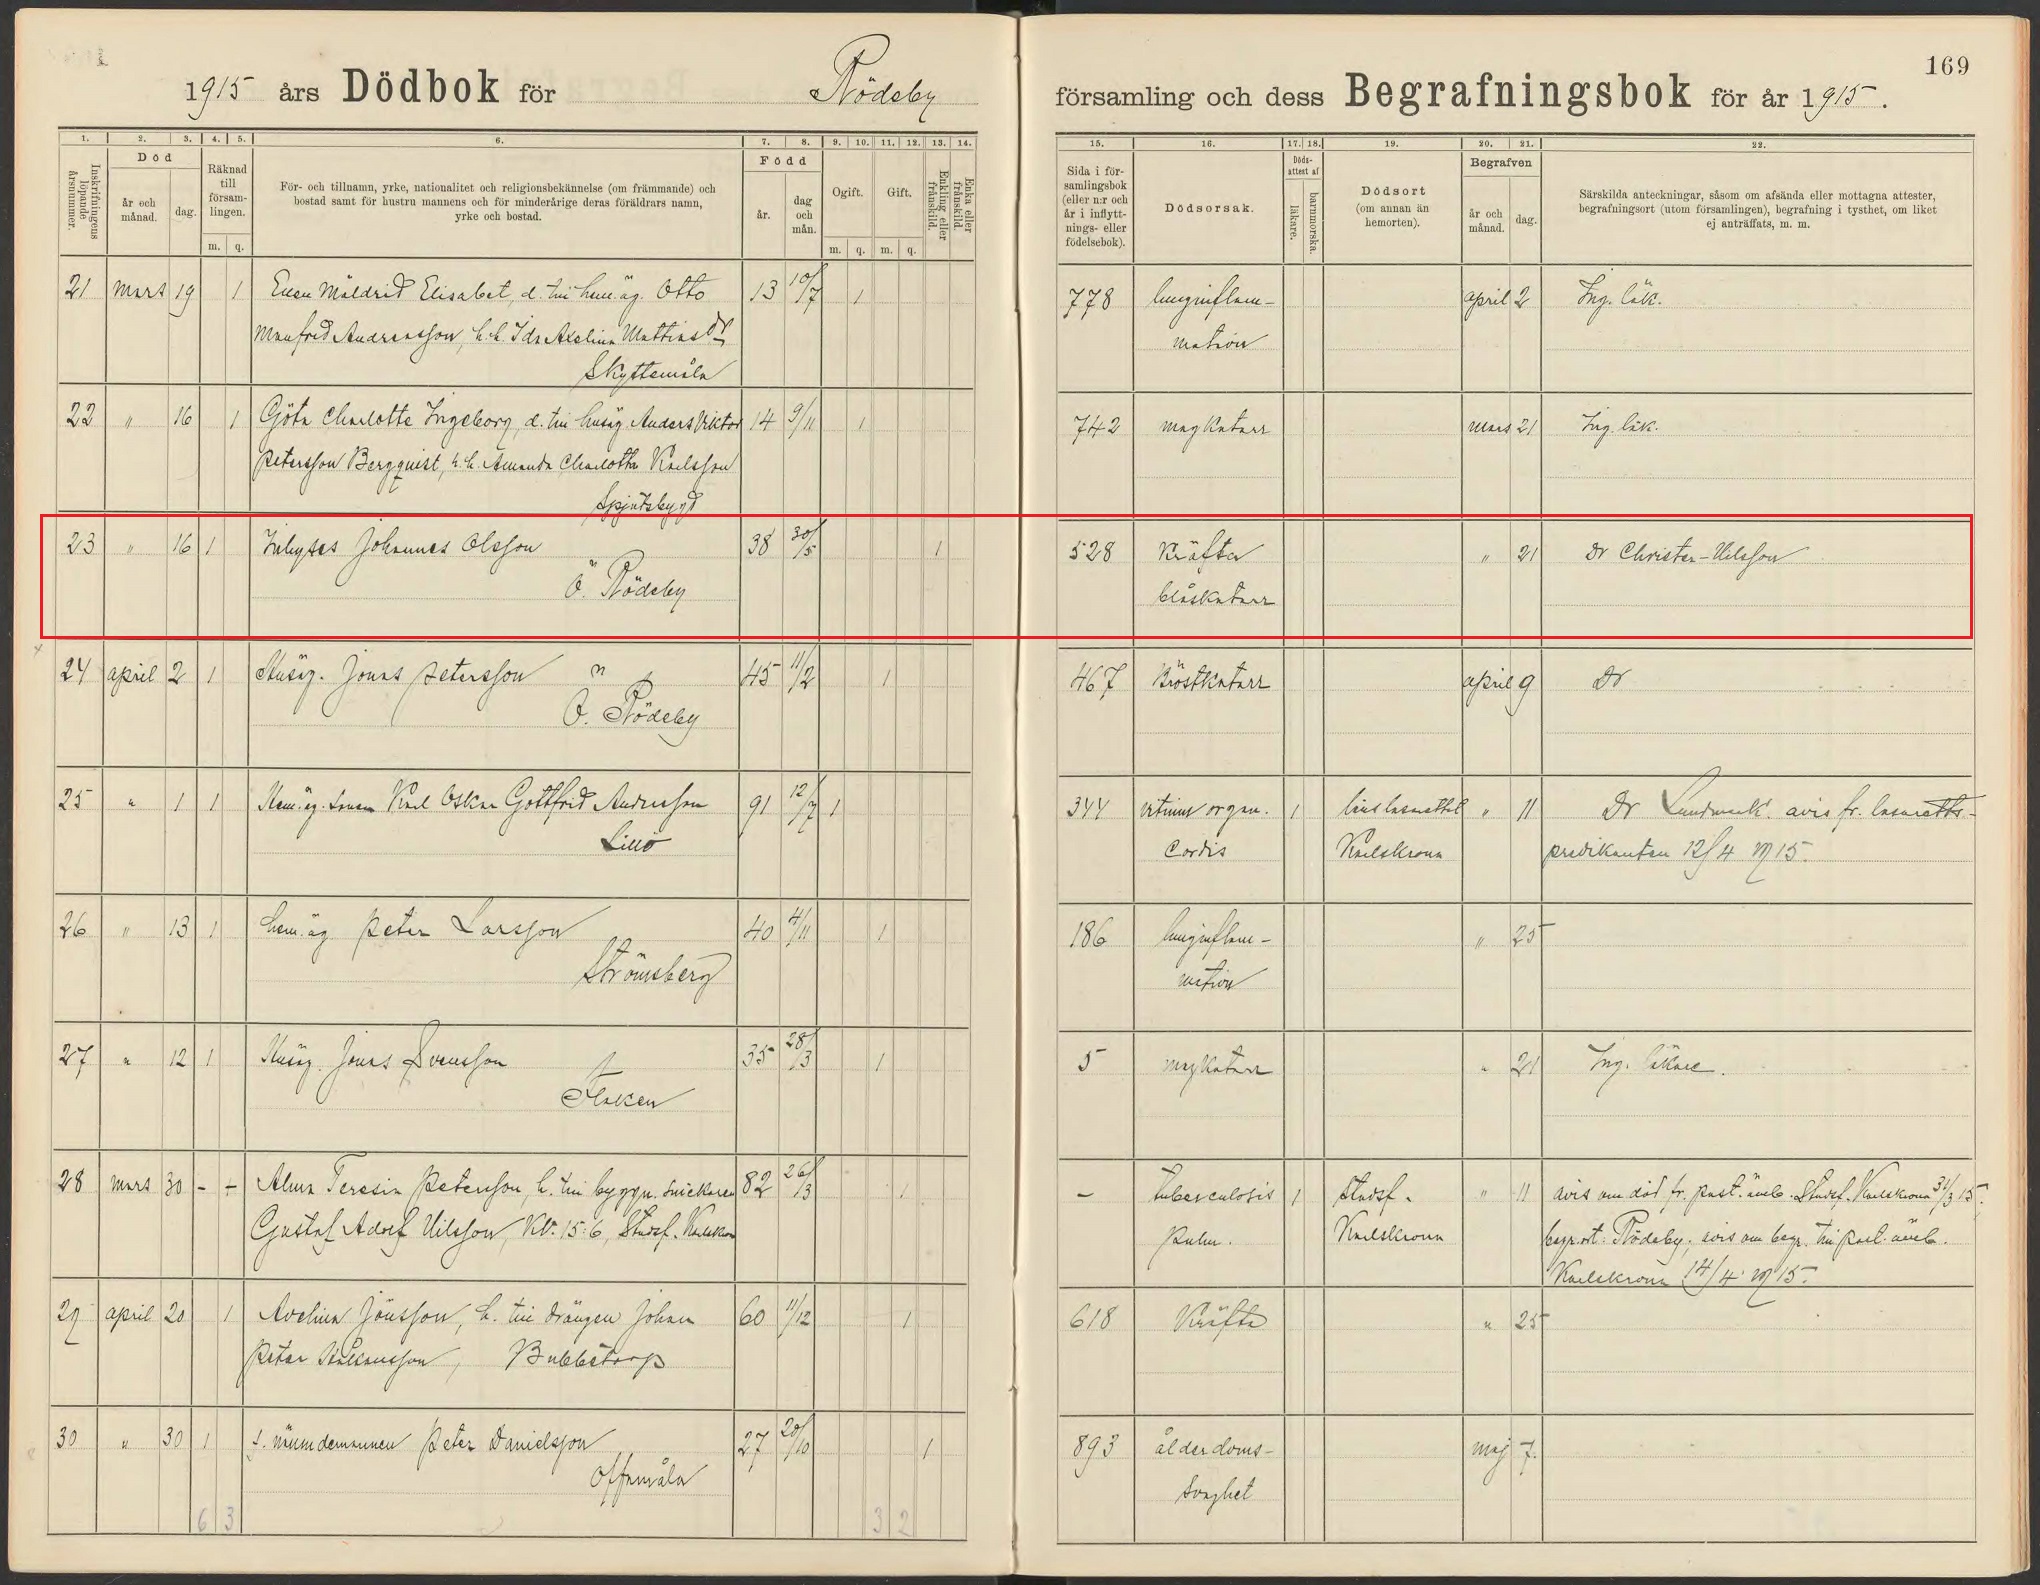 169
1915 års Dödbok för Rödeby
församling och dess Begrafningsbok för år 1915.
1. 2. 3. 4. 5. 6. 7. 8. 9. 10. 11. 12. 13. 14.
Inskrifningens löpande årsnummer.
Död
år och månad.
dag.
Räknad till församlingen.
m. q.
För- och tillnamn, yrke, nationalitet och religionsbekännelse (om främmande) och
bostad samt för hustru mannens och för minderårige deras föräldrars namn,
yrke och bostad.
Född
år.
dag och mån.
Ogift. Gift.
m. q. m. q.
Enkling eller frånskild.
Enka eller frånskild.
15. 16. 17. 18. 19. 20. 21. 22.
Sida i församlingsbok (eller n:r och år i inflyttnings- eller födelsebok).
Dödsorsak.
Dödsattest af
läkare.
barnmorska.
Dödsort
(om annan än
hemorten).
Begrafven
år och månad.
dag.
Särskilda anteckningar, såsom om afsända eller mottagna attester,
begrafningsort (utom församlingen), begrafning i tysthet, om liket
ej anträffats, m. m.
21 mars 19 1 Elisabet, d. till hem.äg. Otto 13 10/7 1 778 lunginflam- april 2 Ing. läk.
Manfrid Andreasson, h. h. Ida Axelina Mattiasdr mation
Skyttemåla
22 " 16 1 Göta Charlotta Ingeborg, d. till husäg. Anders Viktor 14 9/11 1 742 magkatarr mars 21 Ing. läk.
Petersson Bergquist, h. h. Amanda Charlotta Karlsson
Spjutsbygd
23 " 16 1 Inhyses Johannes Olsson 38 30/5 1 528 Kräfta " 21 Dr Christer-Nilsson
Ö. Rödeby blåskatarr
24 april 2 1 Husäg. Jonas Petersson 45 11/2 1 467 Bröstkatarr april 9 Dr
Ö. Rödeby
25 " 1 1 Hem.äg. sonen Karl Oskar Gottfrid Andersson 91 12/7 1 344 vitium organ. 1 länslasarettet " 11 Dr Lundmark. avis fr. lasaretts-
Lillö Cordis Karlskrona predikanten 12/4 1915.
26 " 13 1 hem.äg Peter Larsson 40 4/11 1 186 lunginflam- " 25
Strömsberg mation
27 " 12 1 Husäg. Jonas Svensson 35 28/3 1 5 magkatarr " 21 Ing. läkare.
Flaken
28 mars 30 - - Alma Teresia Peterson, h. till byggn. snickaren 82 26/3 1 - tuberculosis 1 Stadsf. " 11 avis om död fr. past. ämb. Stadsf. Karlskrona 31/3 15;
Gustaf Adolf Nilsson, Kv. 15:6, Stadsf. Karlskrona pulm. Karlskrona begr.ort: Rödeby; avis om begr. till past. ämb.
Karlskrona 14/4 1915.
29 april 20 1 Avelina Jönsson, h. till drängen Johan 60 11/12 1 618 Kräfta " 25
Peter Håkansson, Bubbetorp
30 " 30 1 f. nämndemannen Peter Danielsson 27 20/10 1 893 ålderdoms- maj 7.
Offemåla svaghet
6 3 3 2